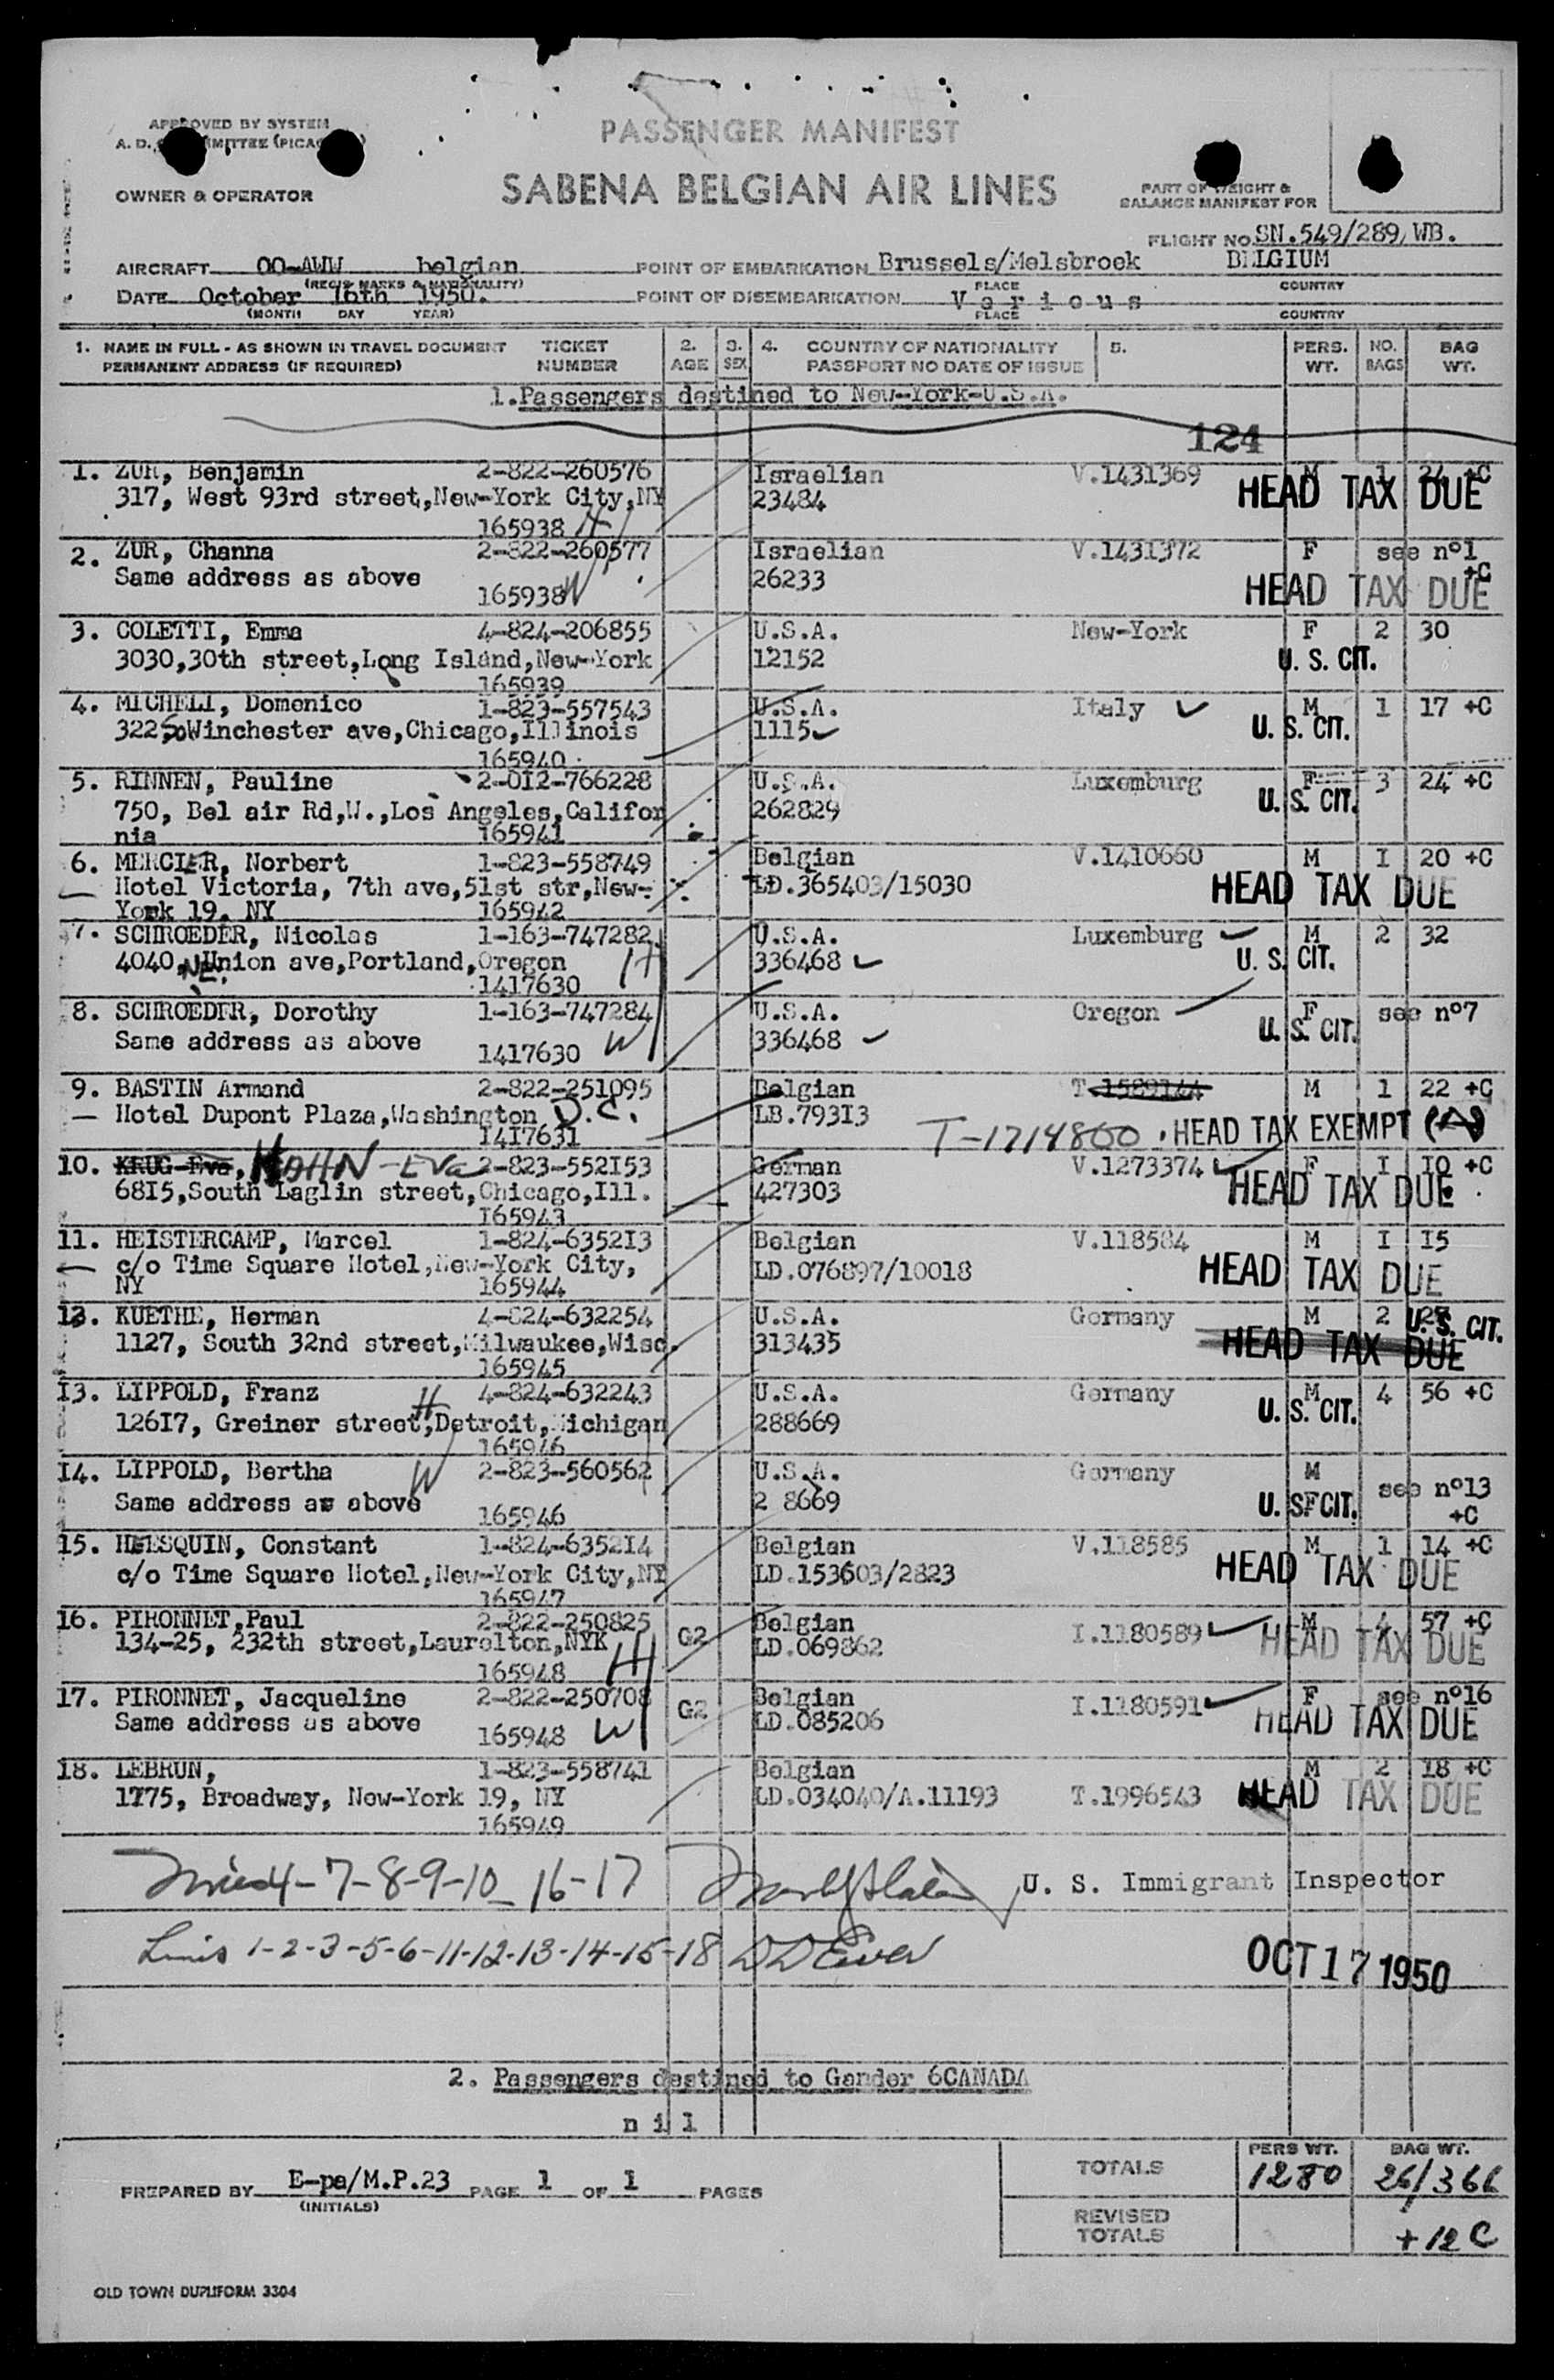 APPROVED BY SYSTEM
PASSENGER MANIFEST
OWNER & OPERATOR
SABENA BELGIAN AIR LINES
PART OF WEIGHT &
BALANCE MANIFEST FOR
FLIGHT NO. SN.549/289/WB.
AIRCRAFT OO-AWW belgian
(REGIS MARKS & NATIONALITY)
POINT OF EMBARKATION Brussels/Melsbroek BELGIUM
PLACE COUNTRY
DATE October 16th 1950.
(MONTH DAY YEAR)
POINT OF DISEMBARKATION Various
PLACE COUNTRY
1. NAME IN FULL - AS SHOWN IN TRAVEL DOCUMENT TICKET 2. 3. 4. COUNTRY OF NATIONALITY 5. PERS. NO. BAG
PERMANENT ADDRESS (IF REQUIRED) NUMBER AGE SEX PASSPORT NO DATE OF ISSUE WT. BAGS WT.
1.Passengers destined to New-York-U.S.A.
124
1. ZUR, Benjamin 2-822-260576 Israelian V.1431369 M 1 24 +C
317, West 93rd street,New-York City,NY 23484 HEAD TAX DUE
165938 H
2. ZUR, Channa 2-822-260577 Israelian V.1431372 F see nº1
Same address as above 26233 +C
165938 W HEAD TAX DUE
3. COLETTI, Emma 4-824-206855 U.S.A. New-York F 2 30
3030,30th street,Long Island,New-York 12152 U. S. CIT.
165939
4. MICHELI, Domenico 1-823-557543 U.S.A. Italy M 1 17 +C
322 So Winchester ave,Chicago,Illinois 1115 U. S. CIT.
165940
5. RINNEN, Pauline 2-012-766228 U.S.A. Luxemburg F 3 24 +C
750, Bel air Rd,W.,Los Angeles,Califor 262829 U. S. CIT.
nia 165941
6. MERCIER, Norbert 1-823-558749 Belgian V.1410660 M I 20 +C
Hotel Victoria, 7th ave,51st str,New- LD.365403/15030 HEAD TAX DUE
York 19. NY 165942
7. SCHROEDER, Nicolas 1-163-747282 U.S.A. Luxemburg M 2 32
4040, NE. Union ave,Portland,Oregon H 336468 U. S. CIT.
1417630
8. SCHROEDER, Dorothy 1-163-747284 U.S.A. Oregon F see nº7
Same address as above 336468 U. S. CIT.
1417630 W
9. BASTIN Armand 2-822-251095 Belgian T-1589144 M 1 22 +C
Hotel Dupont Plaza,Washington D.C. LB.793I3 T-1714800 HEAD TAX EXEMPT
1417631
10. KRUG Eva, HAHN-Eva 2-823-552I53 German V.1273374 F I IO +C
68I5,South Laglin street,Chicago,Ill. 427303 HEAD TAX DUE
I65943
11. HEISTERCAMP, Marcel 1-824-6352I3 Belgian V.118584 M I I5
c/o Time Square Hotel,New-York City, LD.076897/10018 HEAD TAX DUE
NY 165944
12. KUETHE, Herman 4-824-632254 U.S.A. Germany M 2 U. S. CIT.
1127, South 32nd street,Milwaukee,Wisc. 313435 HEAD TAX DUE
165945
I3. LIPPOLD, Franz 4-824-632243 U.S.A. Germany M 4 56 +C
126I7, Greiner street,Detroit,Michigan H 288669 U. S. CIT.
165946
I4. LIPPOLD, Bertha W 2-823-560562 U.S.A. Germany M
Same address as above 2 8669 U. S. CIT. F see nº13
165946 +C
15. HEESQUIN, Constant 1-824-6352I4 Belgian V.118585 M 1 14 +C
c/o Time Square Hotel,New-York City,NY LD.153603/2823 HEAD TAX DUE
165947
16. PIRONNET,Paul 2-822-250825 G2 Belgian I.1180589 M 4 57 +C
134-25, 232th street,Laurelton,NYK LD.069862 HEAD TAX DUE
165948 H
17. PIRONNET, Jacqueline 2-822-250708 G2 Belgian I.1180591 F see nº16
Same address as above LD.085206 HEAD TAX DUE
165948 W
18. LEBRUN, 1-823-558741 Belgian M 2 18 +C
1775, Broadway, New-York 19, NY LD.034040/A.11193 T.1996543 HEAD TAX DUE
165949
4-7-8-9-10-16-17 U. S. Immigrant Inspector
1-2-3-5-6-11-12-13-14-15-18
OCT 17 1950
2. Passengers destined to Gander 6CANADA
nil
TOTALS PERS WT. 1280 BAG WT. 26/366
PREPARED BY E-pe/M.P.23 PAGE 1 OF 1 PAGES
(INITIALS)
REVISED
TOTALS +12 C
OLD TOWN DUPLIFORM 3304